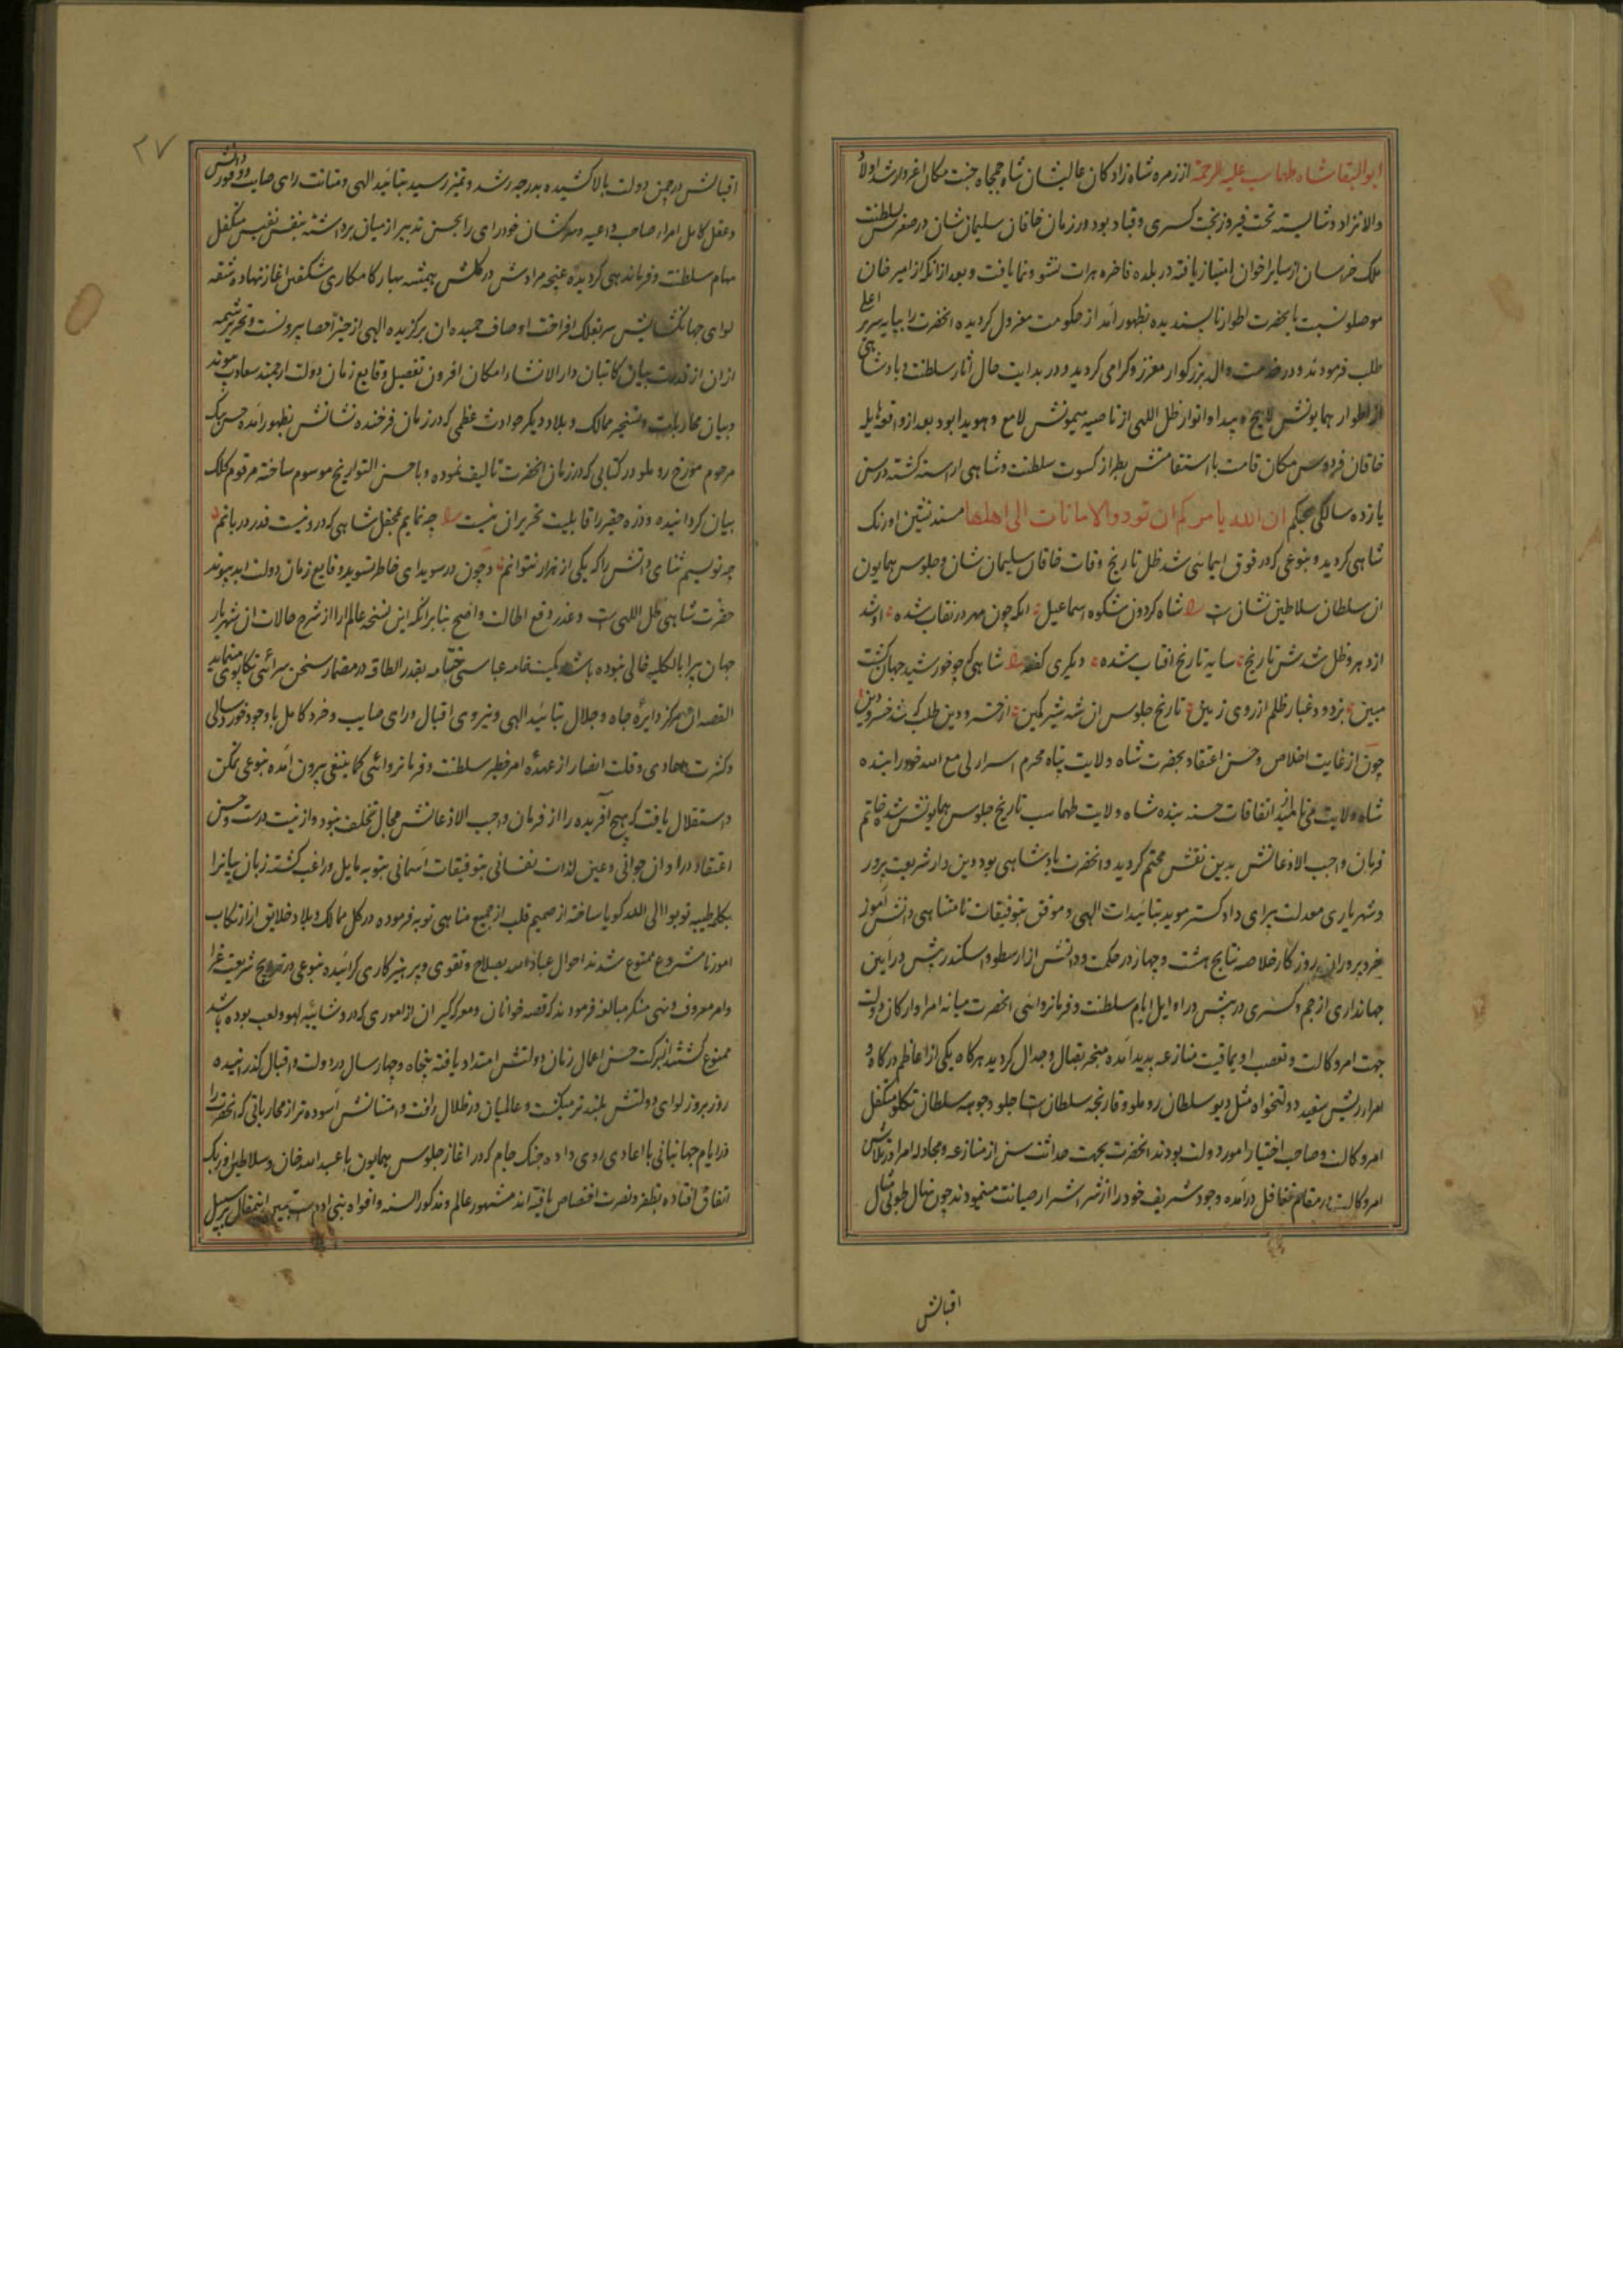 ابوالبقا شاه طهماسب علیه الرحمة از زمره شاه زادکان عالیشان شاه جمجاه جنت مکان اعز و ارشد اولاد
والا نژاد و شایسته تخت فیروز بخت کسری و قباد بود و در زمان خاقان سلیمان شان در صغر سن بسلطنت
ملک خراسان از سایر اخوان امتیاز یافته در بلده فاخره هرات نشو و نما یافت و بعد از انکه از امیر خان
موصلو نسبت بانحضرت اطوار ناپسندیده بظهور آمد از حکومت معزول کردیده انحضرت را بپایه سریر اعلی
طلب فرمودند و در خدمت والد بزرکوار معزز و کرامی کردید و در بدایت حال اثار سلطنت و پادشاهی
از اطوار همایونش لایح و پیدا و انوار ظل اللهی از ناصیه میمونش لامع و هویدا بود بعد از واقعه هایله
خاقان فردوس مکان قامت با استقامتش بطراز کسوت سلطنت و شاهی اراسته کشته در سن
یازده سالکی بحکم ان الله یامرکم ان تودوا الامانات الی اهلها مسند نشین اورنک
شاهی کردید و بنوعی که در فوق ایمائی شد ظل تاریخ وفات خاقان سلیمان شان و جلوس همایون
ان سلطان سلاطین نشان ست شاه کردون شکوه اسماعیل انکه چون مهر در نقاب شده او شد
از دهر و ظل شدش تاریخ سایه تاریخ افتاب شده دیکری کفته شاهی که چو خورشید جهان کشت
مبین بزدود غبار ظلم از روی زمین تاریخ جلوس ان شه شیر کمین از خسرو دین طلب که شد خسرو دین
چون از غایت اخلاص و حسن اعتقاد بحضرت شاه ولایت پناه محرم اسرار لی مع الله خود را بنده
شاه ولایت می نامیدند اتفاقات حسنه بنده شاه ولایت طهماسب تاریخ جلوس همایونش شد خاتم
فرمان واجب الاذعانش بدین نقش مختم کردید و انحضرت پادشاهی بود دین دار شریعت پرور
و شهریاری معدلت پیرای دادکستر موید بتائیدات الهی و موفق بتوفیقات نامتناهی دانش اموز
خردپروران روزکار خلاصه نتایج هشت و چهار در حکمت و دانش از ارسطو و اسکندر پیش در آیین
جهانداری از جم و کسری در پیش در اوایل ایام سلطنت و فرمانروائی انحضرت میانه امرا و ارکان دولت
جهت امر وکالت و تعصب اویماقیت منازعه پدید آمده منجر بقتال و جدال کردید هرکاه یکی از اعاظم درکاه و
امراء ریش سفید دولتخواه مثل دیو سلطان روملو و قارنجه سلطان استاجلو و جوهه سلطان تکلو متکفل
امر وکالت و صاحب اختیار امور دولت بودند انحضرت بجهت حداثت سن از منازعه و مجادله امرا در تلاش
امر وکالت در مقام تغافل درآمده وجود شریف خود را از شر اشرار صیانت مینمودند چون نهال طوبی مثال
اقبالش
۲۷
اقبالش در چمن دولت بالا کشیده بدرجه رشد و تمیز رسید بتائید الهی و متانت رای صایب و وفور دانش
و عقل کامل امراء صاحب داعیه و سرکشان خودرای را بحسن تدبیر از میان برداشته بنفس نفیس متکفل
مهام سلطنت و فرماندهی کردیده غنچه مرادش در کلشن همیشه بهار کامکاری شکفتن اغاز نهاده شقه
لوای جهانکشایش سر بفلک افراخت اوصاف حمیده ان برکزیده الهی از حیز احصا بیرونست و تحریر شمه
ازان از قدرت بیان کاتبان دارالانشاء امکان افزون تفصیل وقایع زمان دولت ارجمند سعادت پیوند
و بیان محاربات و تسخیر ممالک و بلاد و دیکر حوادث عظمی که در زمان فرخنده نشانش بظهور آمده حسن بیک
مرحوم مورخ روملو در کتابی که در زمان انحضرت تالیف نموده و باحسن التواریخ موسوم ساخته مرقوم کلک
بیان کردانیده و ذره حقیر را قابلیت تحریر ان نیست چه نمایم بمحفل شاهی که درو نیست قدر دربانم
چه نویسم ثنای ذاتش را که یکی از هزار نتوانم و چون در سویدای خاطر تسوید وقایع زمان دولت ابد پیوند
حضرت شاهی ظل اللهی ست و عذر رفع اطالت واضح بنا برانکه این نسخه عالم ارا از شرح حالات ان شهریار
جهان پیرا بالکلیه خالی نبوده باشد کمیت خامه عباسی ختامه بقدر الطاقه در مضمار سخن سرائی تکاپوی مینماید
القصه ان مرکز دایره جاه و جلال بتائید الهی و نیروی اقبال و رای صایب و خرد کامل با وجود خورد سالی
و کثرت اعادی و قلت انصار از عهده امر خطیر سلطنت و فرمانروائی کما ینبغی بیرون آمده بنوعی تمکن
و استقلال یافت که هیچ آفریده را از فرمان واجب الاذعانش مجال تخلف نبود و از نیت درست و حسن
اعتقاد در اوان جوانی و عین لذات نفسانی بتوفیقات آسمانی بتوبه مایل و راغب کشته زبان بیانرا
بکلمه طیبه توبوا الی الله کویا ساخته از صمیم قلب از جمیع مناهی توبه فرموده در کل ممالک و بلاد خلایق از ارتکاب
امور نامشروع ممنوع شدند احوال عباد الله بصلاح و تقوی و پرهیزکاری کرائیده بنوعی در ترویج شریعت غرا
و امر معروف و نهی منکر مبالغه فرمودند که قصه خوانان و معرکه کیران از اموری که در و شائبه لهو و لعب بوده باشد
ممنوع کشتند از برکت حسن اعمال زمان دولتش امتداد یافته پنجاه و چهار سال در دولت و اقبال کذرانیده
روز بروز لوای دولتش بلندتر میکشت و عالمیان در ظلال رافت و امتنانش آسوده تر از محارباتی که انحضرت را
در ایام جهانبانی با اعادی روی داده جنک جام که در اغاز جلوس همایون با عبید الله خان و سلاطین اوزبک
اتفاق افتاده بظفر و نصرت اختصاص یافته اند مشهور عالم و مذکور السنه و افواه بنی ادم ست بر سبیل